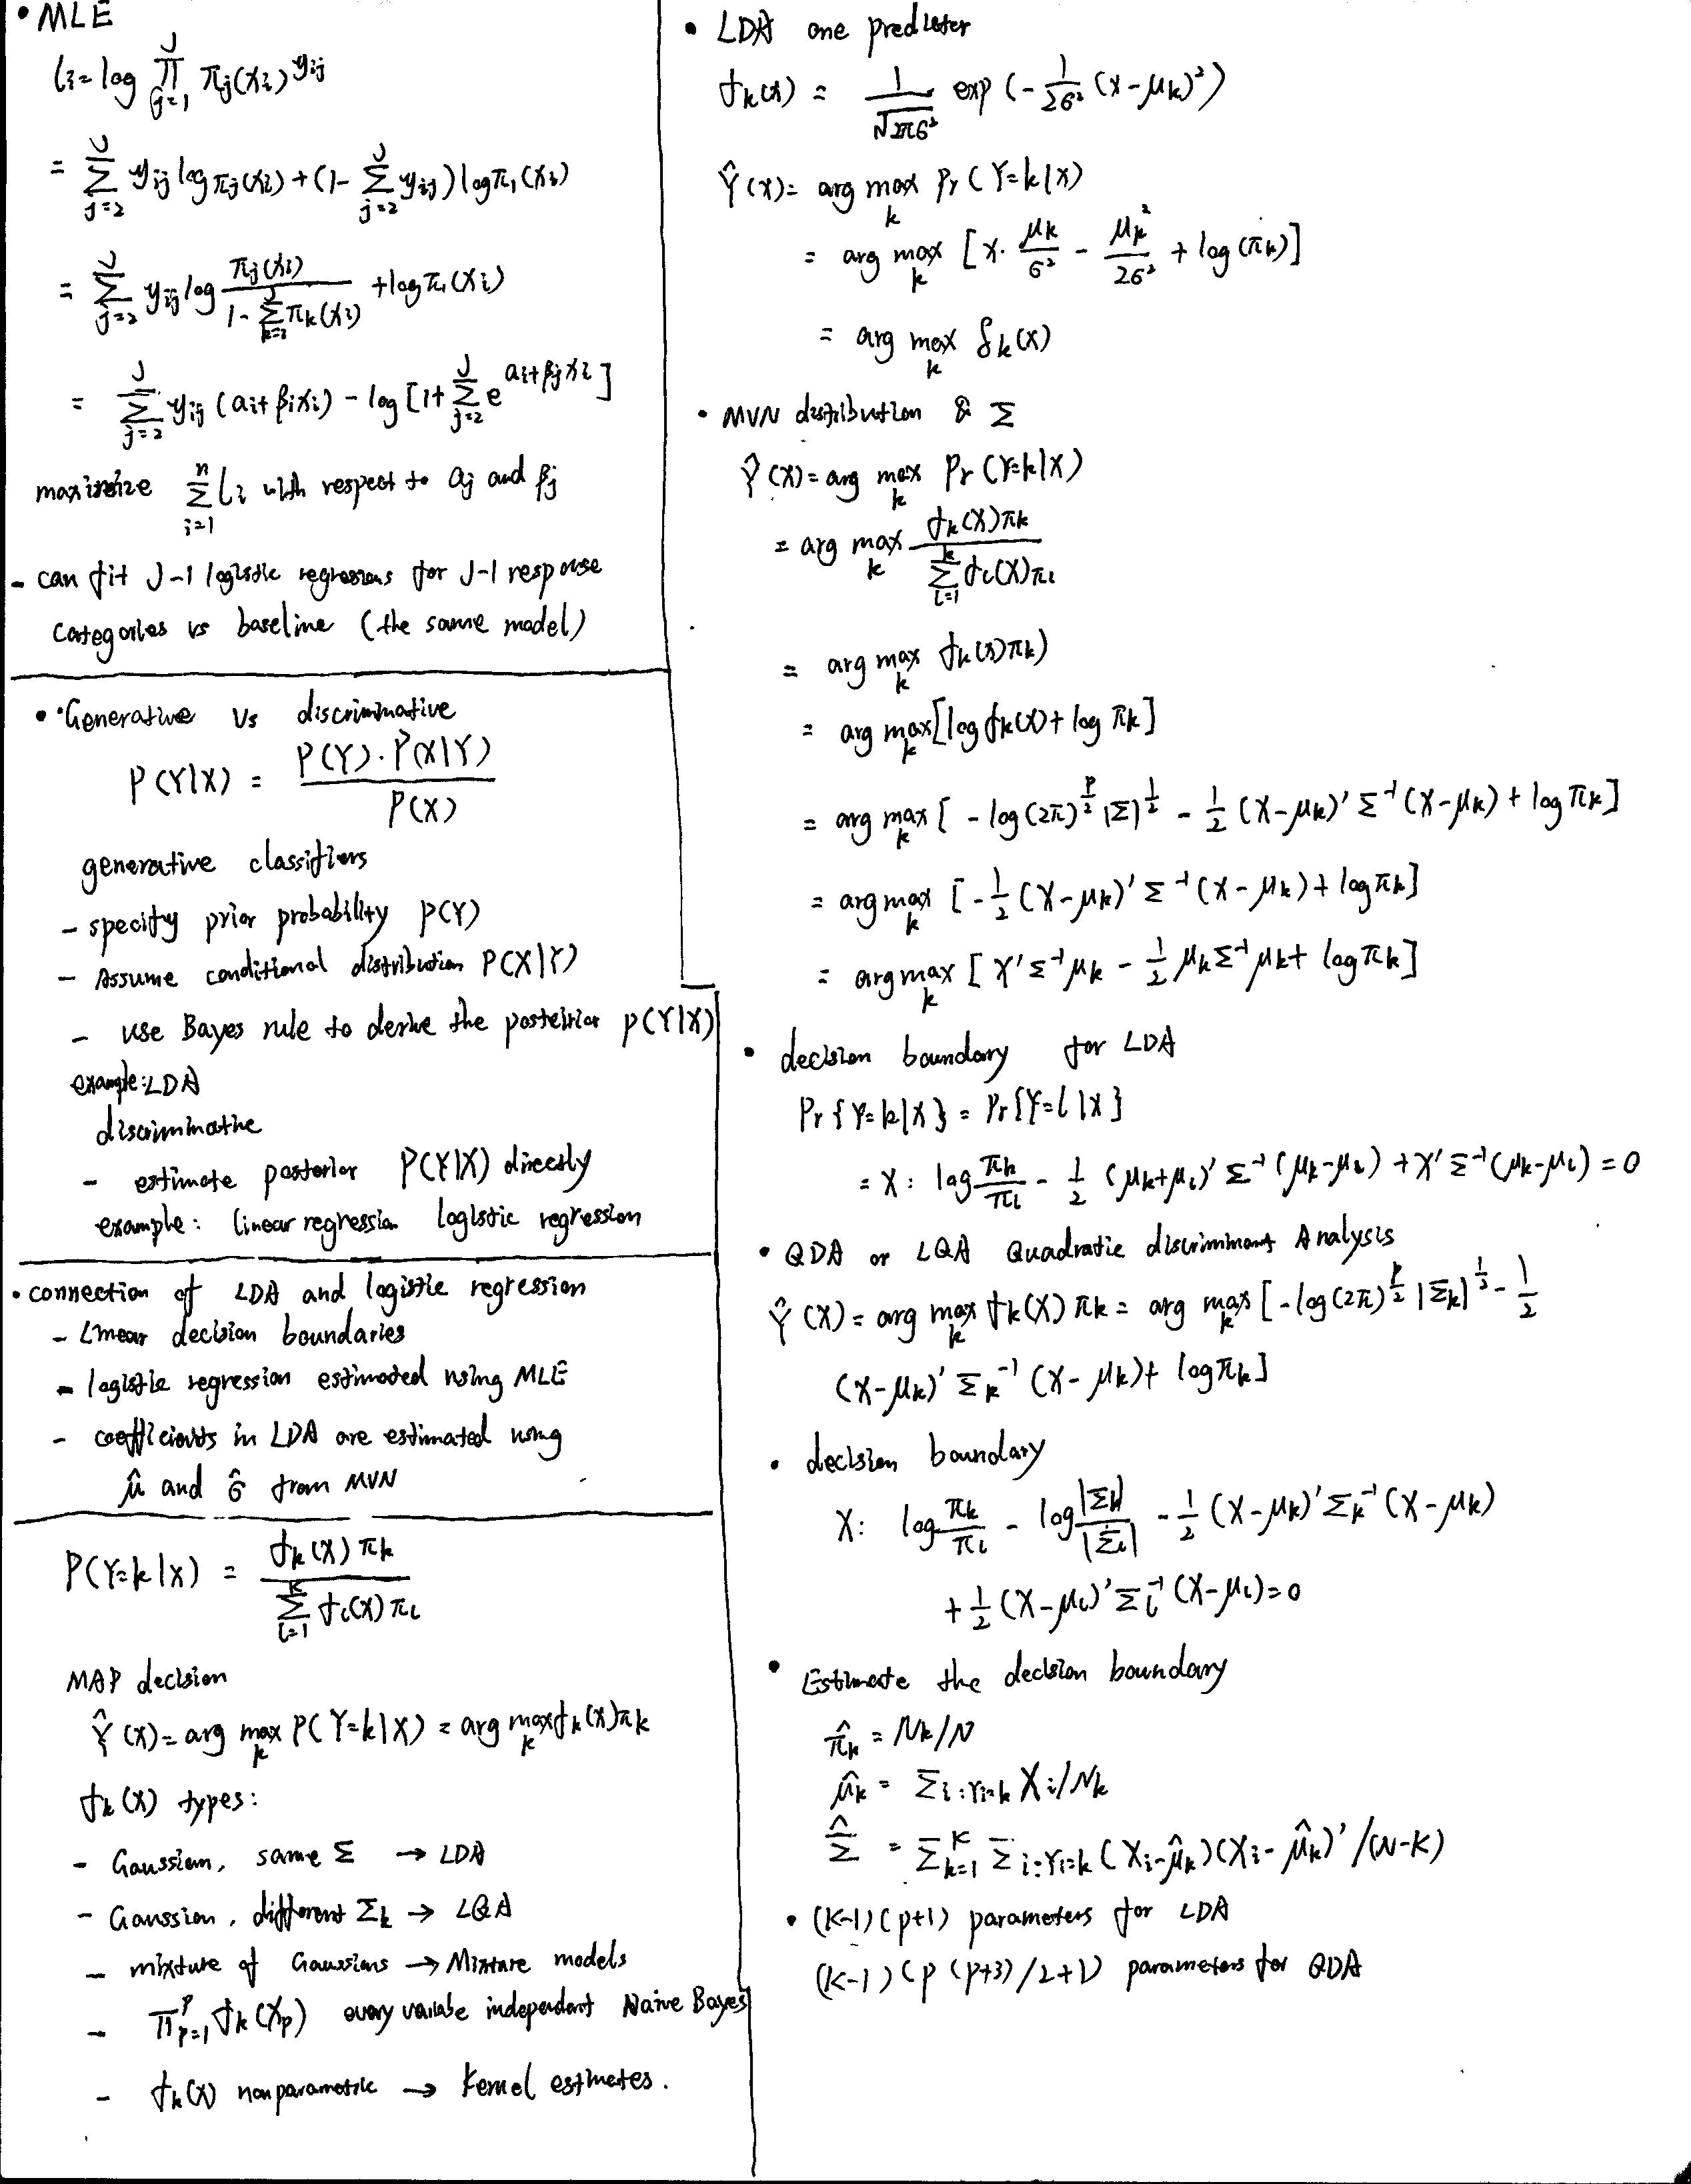 • MLE
li = log ∏_{j=1}^{J} πj(xi)^{yij}
= Σ_{j=2}^{J} yij log πj(xi) + (1 - Σ_{j=2}^{J} yij) log π1(xi)
= Σ_{j=2}^{J} yij log πj(xi) / (1 - Σ_{k=2}^{J} πk(xi)) + log π1(xi)
= Σ_{j=2}^{J} yij (ai + βixi) - log [1 + Σ_{j=2}^{J} e^{ai+βjxi}]
maximize Σ_{i=1}^{n} li with respect to aj and βj
- can fit J-1 logistic regressions for J-1 response
categories vs baseline (the same model)
• Generative vs discriminative
P(Y|X) = P(Y)·P(X|Y) / P(X)
generative classifiers
- specify prior probability P(Y)
- Assume conditional distribution P(X|Y)
- use Bayes rule to derive the posterior P(Y|X)
example: LDA
discriminative
- estimate posterior P(Y|X) directly
example: linear regression logistic regression
• connection of LDA and logistic regression
- Linear decision boundaries
- logistic regression estimated using MLE
- coefficients in LDA are estimated using
μ̂ and σ̂ from MVN
P(Y=k|x) = fk(x) πk / Σ_{l=1}^{K} fl(x) πl
MAP decision
Ŷ(x) = arg max_k P(Y=k|X) = arg max_k fk(x) πk
fk(X) types:
- Gaussian, same Σ → LDA
- Gaussian, different Σk → LQA
- mixture of Gaussians → Mixture models
- ∏_{p=1}^{P} fk(Xp) every variable independent Naive Bayes
- fk(x) nonparametric → Kernel estimates.
• LDA one predictor
fk(x) = 1/√(2πσ²) exp(-1/(2σ²) (x-μk)²)
Ŷ(x) = arg max_k Pr(Y=k|x)
= arg max_k [x · μk/σ² - μk²/(2σ²) + log(πk)]
= arg max_k δk(x)
• MVN distribution & Σ
Ŷ(X) = arg max_k Pr(Y=k|X)
= arg max_k fk(X)πk / Σ_{l=1}^{k} fl(X)πl
= arg max_k fk(x)πk)
= arg max_k [log fk(x) + log πk]
= arg max_k [-log (2π)^{p/2} |Σ|^{1/2} - 1/2 (X-μk)' Σ⁻¹ (X-μk) + log πk]
= arg max_k [-1/2 (X-μk)' Σ⁻¹ (X-μk) + log πk]
= arg max_k [X'Σ⁻¹μk - 1/2 μkΣ⁻¹μk + log πk]
• decision boundary for LDA
Pr{Y=k|X} = Pr{Y=l|X}
= X: log πk/πl - 1/2 (μk+μl)' Σ⁻¹ (μk-μl) + X'Σ⁻¹(μk-μl) = 0
• QDA or LQA Quadratic discriminant Analysis
Ŷ(X) = arg max_k fk(X) πk = arg max_k [-log (2π)^{p/2} |Σk|^{1/2} - 1/2
(X-μk)' Σk⁻¹ (X-μk) + log πk]
• decision boundary
X: log πk/πl - log |Σk|/|Σl| - 1/2 (X-μk)' Σk⁻¹ (X-μk)
+ 1/2 (X-μl)' Σl⁻¹ (X-μl) = 0
• Estimate the decision boundary
π̂k = Nk/N
μ̂k = Σ_{i:Yi=k} Xi/Nk
Σ̂ = Σ_{k=1}^{K} Σ_{i:Yi=k} (Xi-μ̂k)(Xi-μ̂k)' /(N-K)
• (K-1)(p+1) parameters for LDA
(K-1)(p(p+3)/2+1) parameters for QDA